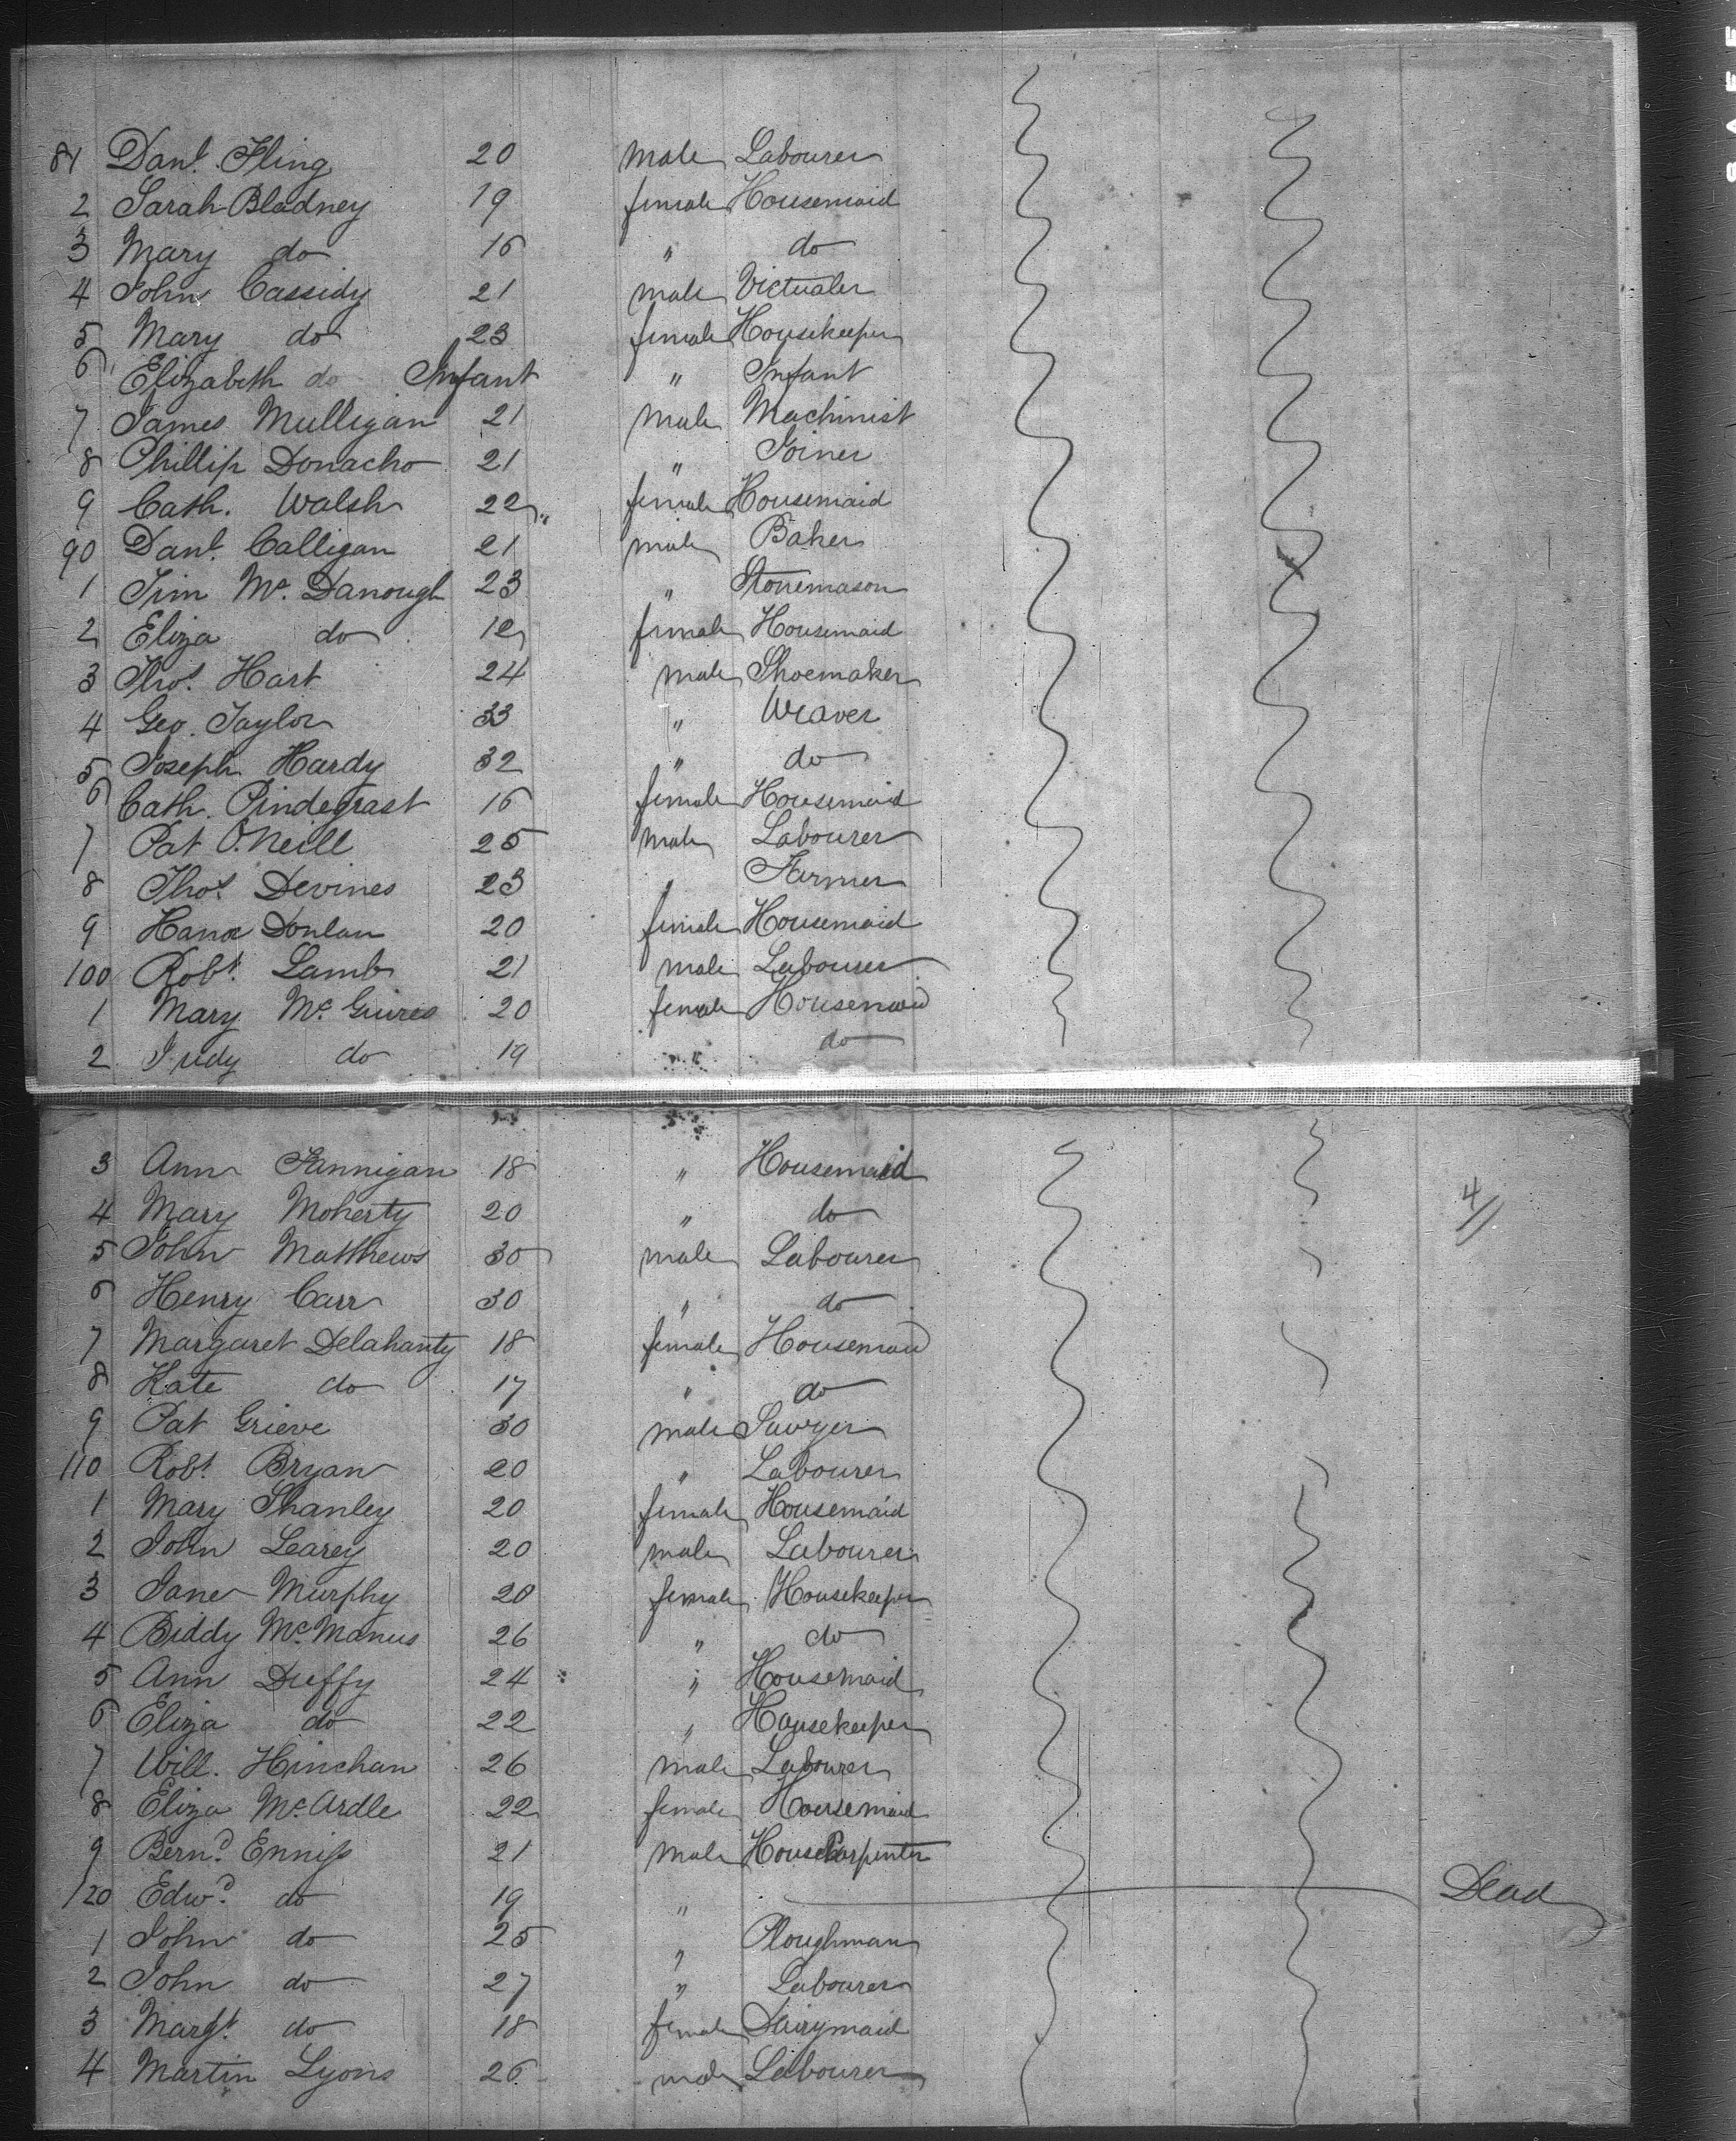 81 Danl. Fling 20 male Labourer
2 Sarah Bladney 19 female Housemaid
3 Mary do 16 " do
4 John Cassidy 21 male Victualer
5 Mary do 23 female Housekeeper
6 Elizabeth do Infant " Infant
7 James Mulligan 21 male Machinist
8 Phillip Donacho 21 " Joiner
9 Cath. Walsh 22 female Housemaid
90 Danl. Calligan 21 male Baker
1 Jim Mc. Danough 23 " Stonemason
2 Eliza do 12 female Housemaid
3 Thos. Hart 24 male Shoemaker
4 Geo. Taylor 33 " Weaver
5 Joseph Hardy 32 " do
6 Cath. Pindegrast 16 female Housemaid
7 Pat O.Neill 25 male Labourer
8 Thos. Devines 23 " Farmer
9 Hana Donlan 20 female Housemaid
100 Robt. Lamb 21 male Labourer
1 Mary Mc. Guires 20 female Housemaid
2 Judy do 19 " do
3 Ann Fannigan 18 " Housemaid
4 Mary Moherty 20 " do 4//
5 John Matthews 30 male Labourer
6 Henry Carr 30 " do
7 Margaret Delahanty 18 female Housemaid
8 Kate do 17 " do
9 Pat Grieve 30 male Sawyer
110 Robt. Bryan 20 " Labourer
1 Mary Shanley 20 female Housemaid
2 John Learey 20 male Labourer
3 Jane Murphy 20 female Housekeeper
4 Biddy Mc. Manus 26 " do
5 Ann Duffy 24 " Housemaid
6 Eliza do 22 " Housekeeper
7 Will. Hinchan 26 male Labourer
8 Eliza Mc. Ardle 22 female Housemaid
9 Bernd. Enniss 21 male House Carpenter
120 Edwd. do 19 " Dead
1 John do 25 " Ploughman
2 John do 27 " Labourer
3 Margt. do 18 female Dairymaid
4 Martin Lyons 26 male Labourer